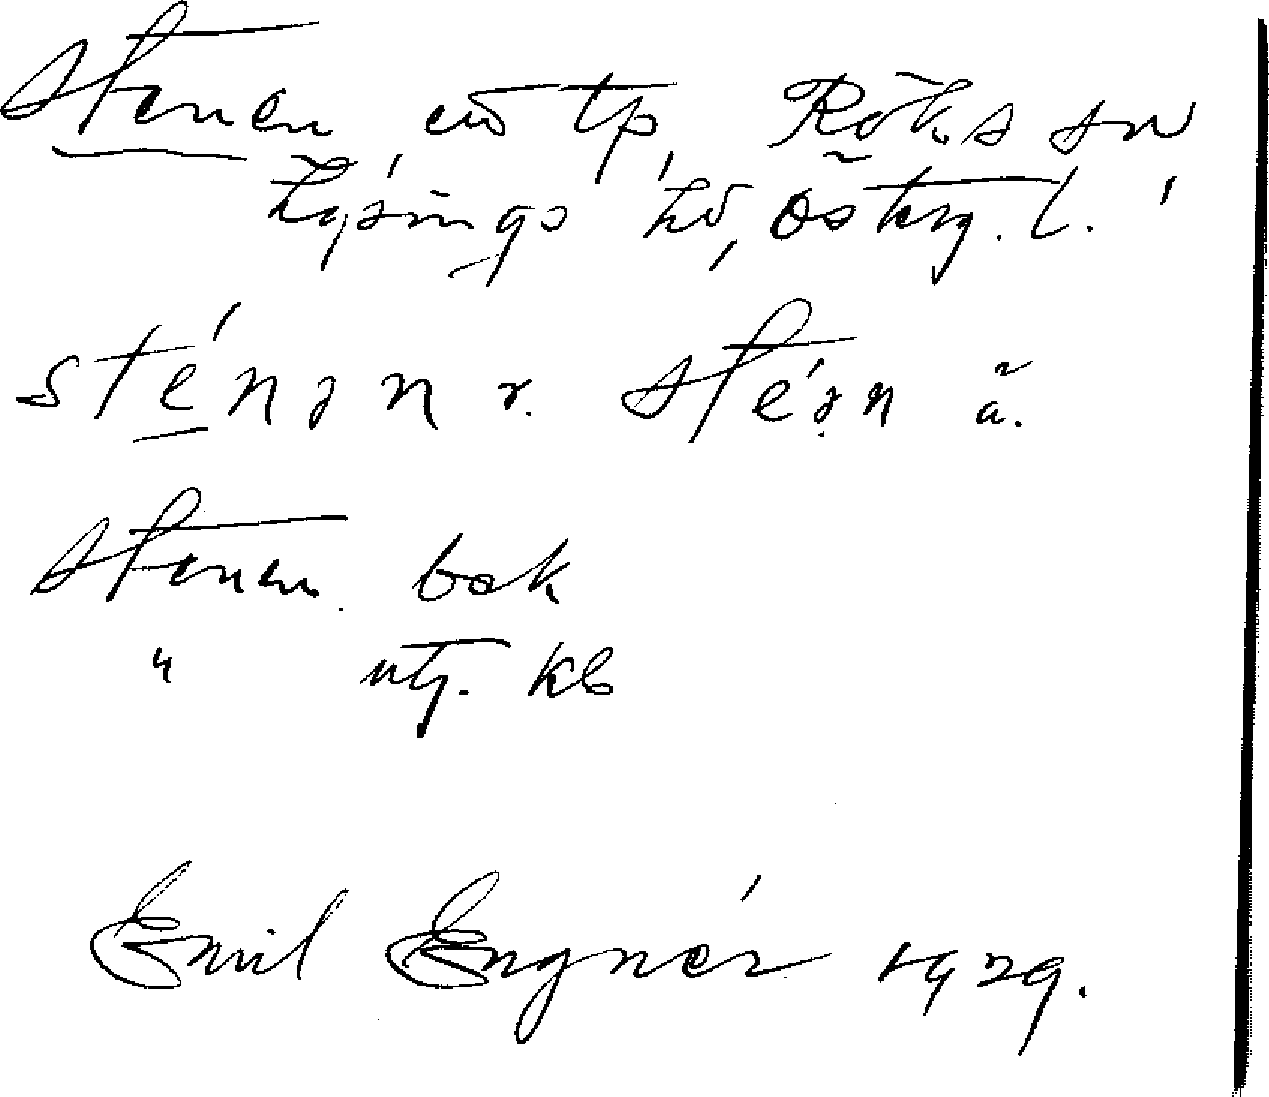 Stenen, ew tp, Röks sn
Lysings hd, Östrg. l.
sténən r. stéən ä.
Stenen bok
" utg. kb
Emil Engnér 1929.